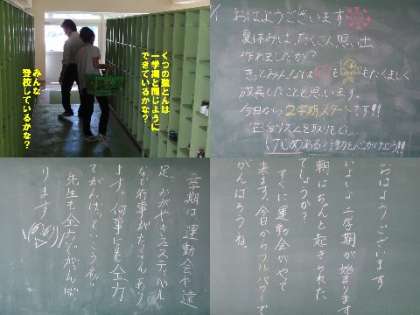 くつの整とんは
一学期と同じように
できているかな？
みんな
登校しているかな？
おはようございます
夏休みは、たくさん思い出
作れましたか？
きっとみんな心も体もたくましく
成長したことと思います。
今日から2学期スタートです!!
けじめある行動を心がけよう!!
二学期は運動会や遠
足、みがやきフェスティバル
など行事がたくさんあり
ます。何事にも全力
でがんばっていこうね。
先生も全力でがんば
ります
おはようございます
いよいよ二学期が始まります
朝はちゃんと起きられた
でしょうか？
すぐに運動会がやって
来ます。今日からフルパワーで
がんばろうね。